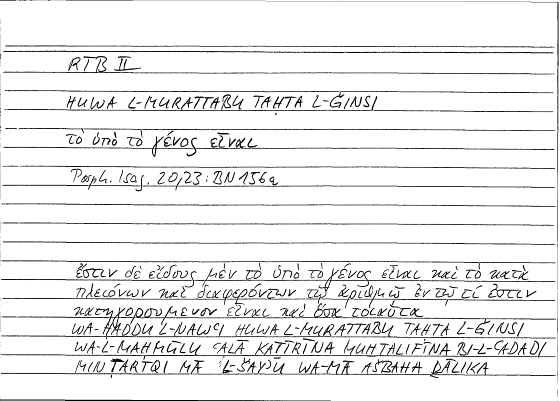 RTB II
HUWA L-MURATTABU TAḤTA L-ǦINSI
τὸ ὑπὸ τὸ γένος εἶναι
Porph. Isag. 20,23 : BN 156a
ἔστιν δὲ εἴδους μὲν τὸ ὑπὸ τὸ γένος εἶναι καὶ τὸ κατὰ
πλειόνων καὶ διαφερόντων τῷ ἀριθμῷ ἐν τῷ τί ἐστιν
κατηγορούμενον εἶναι καὶ ὅσα τοιαῦτα
WA-ḤADDU L-NAWʿI HUWA L-MURATTABU TAḤTA L-ǦINSI
WA-L-MAḤMŪLU ʿALĀ KAṮĪRĪNA MUḪTALIFĪNA BI-L-ʿADADI
MIN ṬARĪQI MĀ L-ŠAYʾU WA-MĀ AŠBAHA ḎĀLIKA